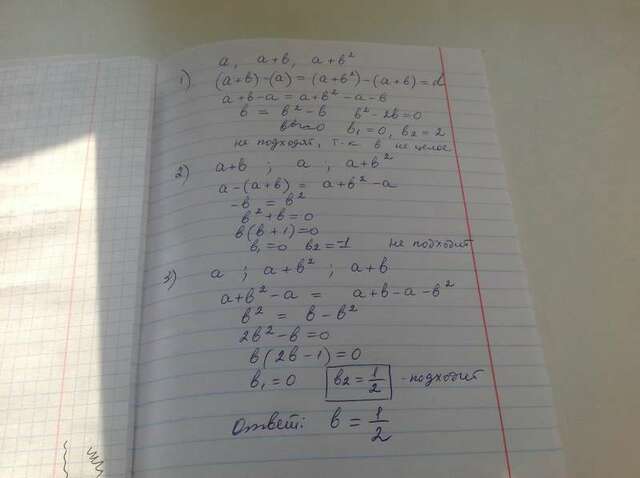 a, a+b, a+b²
1) (a+b)-(a) = (a+b²)-(a+b) = d
a+b-a = a+b²-a-b
b = b²-b b²-2b=0
b₁=0, b₂=2
не подходят, т-к b не целое
2) a+b ; a ; a+b²
a-(a+b) = a+b²-a
-b = b²
b²+b=0
b(b+1)=0
b₁=0 b₂=-1 не подходит
3) a ; a+b² ; a+b
a+b²-a = a+b-a-b²
b² = b-b²
2b²-b=0
b(2b-1)=0
b₁=0 b₂=1/2 -подходит
Ответ: b = 1/2